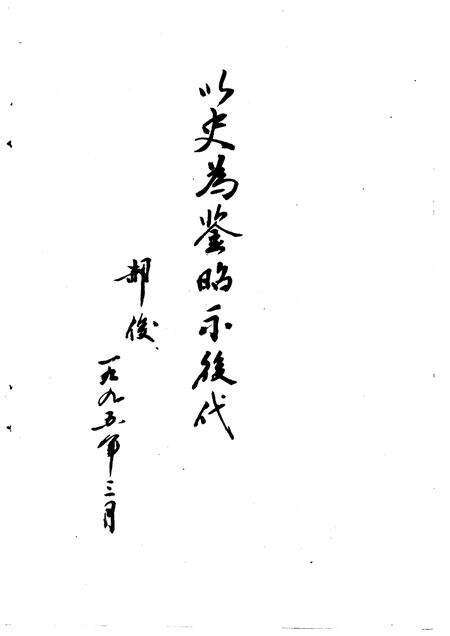 以史為鉴昭示後代
郝俊
一九九五年三月